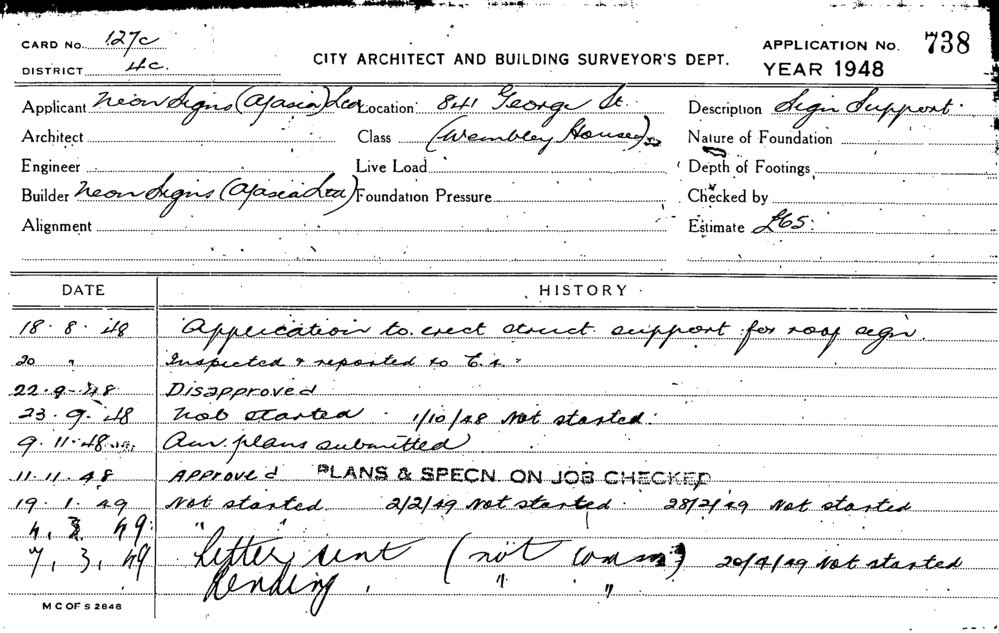 CARD No. 127c
CITY ARCHITECT AND BUILDING SURVEYOR'S DEPT.
APPLICATION No. 738
DISTRICT 4c.
YEAR 1948
Applicant Neon Signs (A/asia) Ltd Location 841 George St. Description Sign Support.
Architect Class (Wembley House) Nature of Foundation
Engineer Live Load Depth of Footings
Builder Neon Signs (A/asia Ltd) Foundation Pressure Checked by
Alignment Estimate £65:
DATE HISTORY
18 . 8 . 48 Application to erect struct. support for roof sign.
20 " Inspected & reported to
22.9.48 Disapproved
23.9.48 Not started . 1/10/48 Not started.
9.11.48 Am. plans submitted
11.11.48 Approved PLANS & SPECN. ON JOB CHECKED
19.1.49 Not started. 2/2/49 Not started. 28/2/49 Not started
4, 3, 49. " "
7, 3, 49 Letter sent (not comm) 20/4/49 Not started
Pending , " "
M C OF S 2848